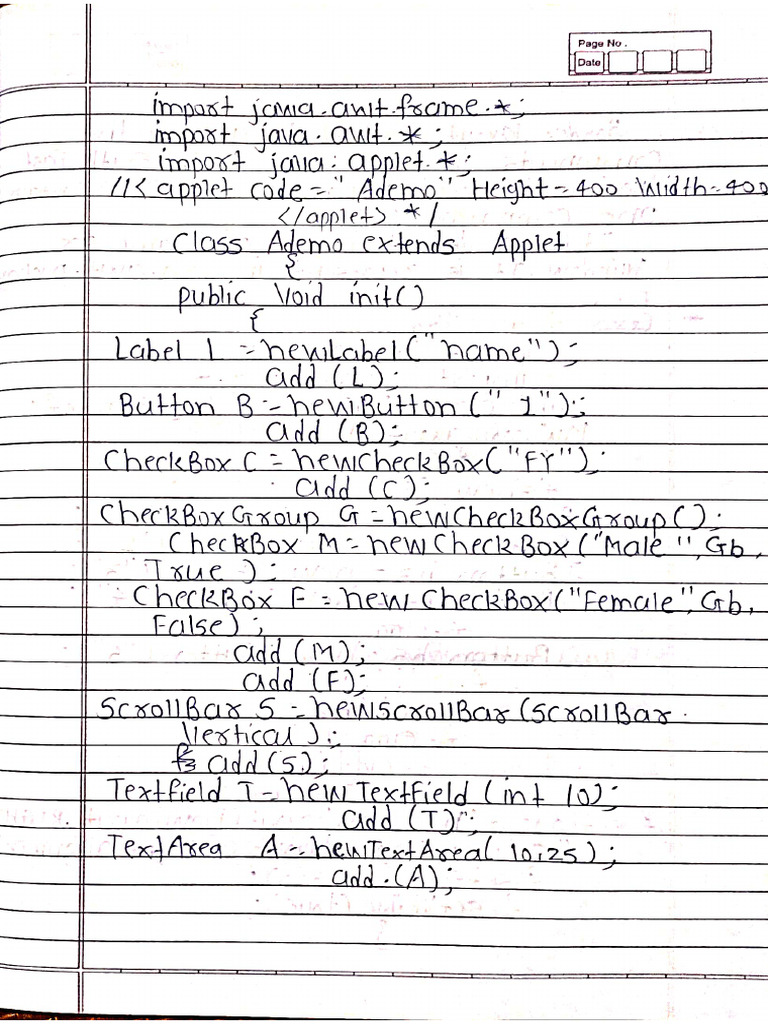 Page No.
Date
import java.awt.frame.*;
import java.awt.*;
import java.applet.*;
//< applet code = "Ademo" Height=400 Width=400
</applet> */
Class Ademo extends Applet
{
public Void init()
{
Label l = newLabel("name");
add (L);
Button B = newButton (" 1");
add (B);
CheckBox C = newCheckBox("FY");
add (C);
CheckBoxGroup G = newCheckBoxGroup();
CheckBox M = newCheckBox ("Male", Gb,
True );
CheckBox F = new CheckBox("Female", Gb,
False);
add (M);
add (F);
ScrollBar S = newScrollBar (ScrollBar.
Vertical );
add(S);
Textfield T = new TextField (int 10);
add (T);
TextArea A = newTextArea( 10,25);
add.(A);